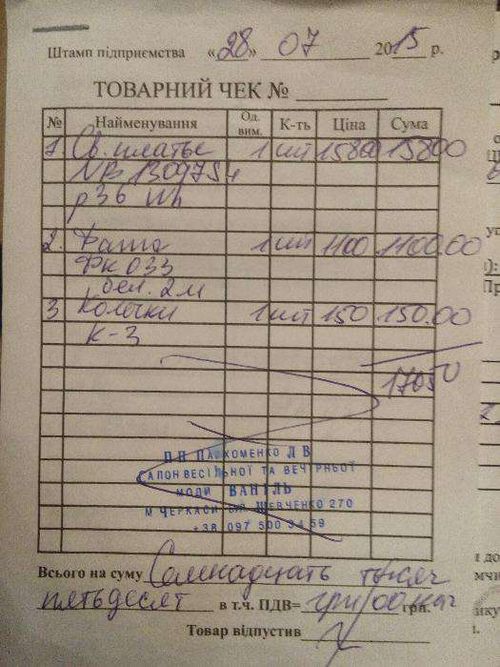 Штамп підприємства «28» 07 2015 р.
ТОВАРНИЙ ЧЕК №
№ Найменування Од. вим. К-ть Ціна Сума
1 Св. платье 1 шт 15800 15800
NB 130975
р 36
2. Фата 1 шт 1100 1100.00
ФК 033
бел. 2м
3 Колечки 1 шт 150 150.00
К-3
17050
ПП ПАРХОМЕНКО Л В
САЛОН ВЕСІЛЬНОЇ ТА ВЕЧІРНЬОЇ
МОДИ ВАНІЛЬ
М ЧЕРКАСИ ВУЛ ШЕВЧЕНКО 270
+38 097 500 34 59
Всього на суму Семнадцать тысяч
пятьдесят в т.ч. ПДВ= грн/00 коп грн.
Товар відпустив